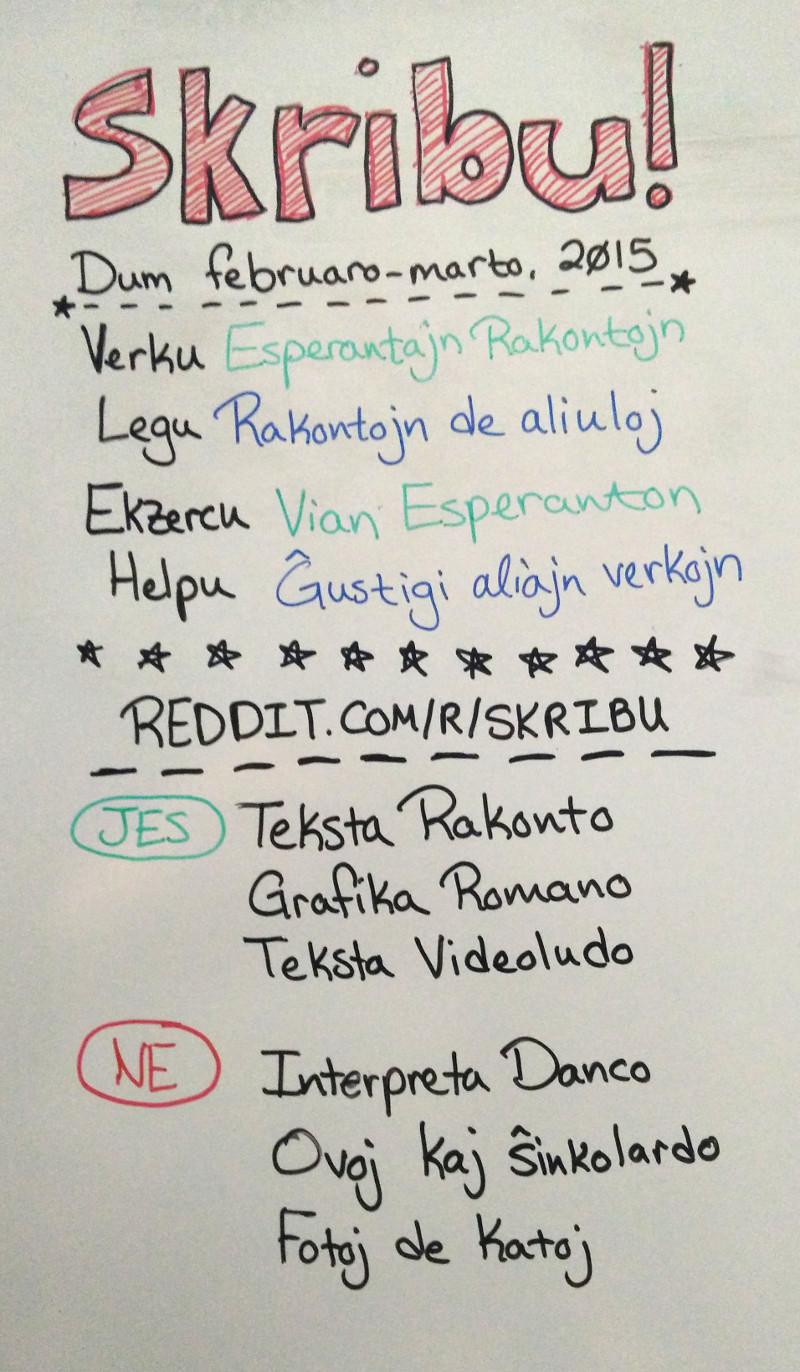 Skribu!
Dum februaro-marto, 2015
Verku Esperantajn Rakontojn
Legu Rakontojn de aliuloj
Ekzercu Vian Esperanton
Helpu Ĝustigi aliajn verkojn
REDDIT.COM/R/SKRIBU
JES Teksta Rakonto
Grafika Romano
Teksta Videoludo
NE Interpreta Danco
Ovoj kaj ŝinkolardo
Fotoj de Katoj